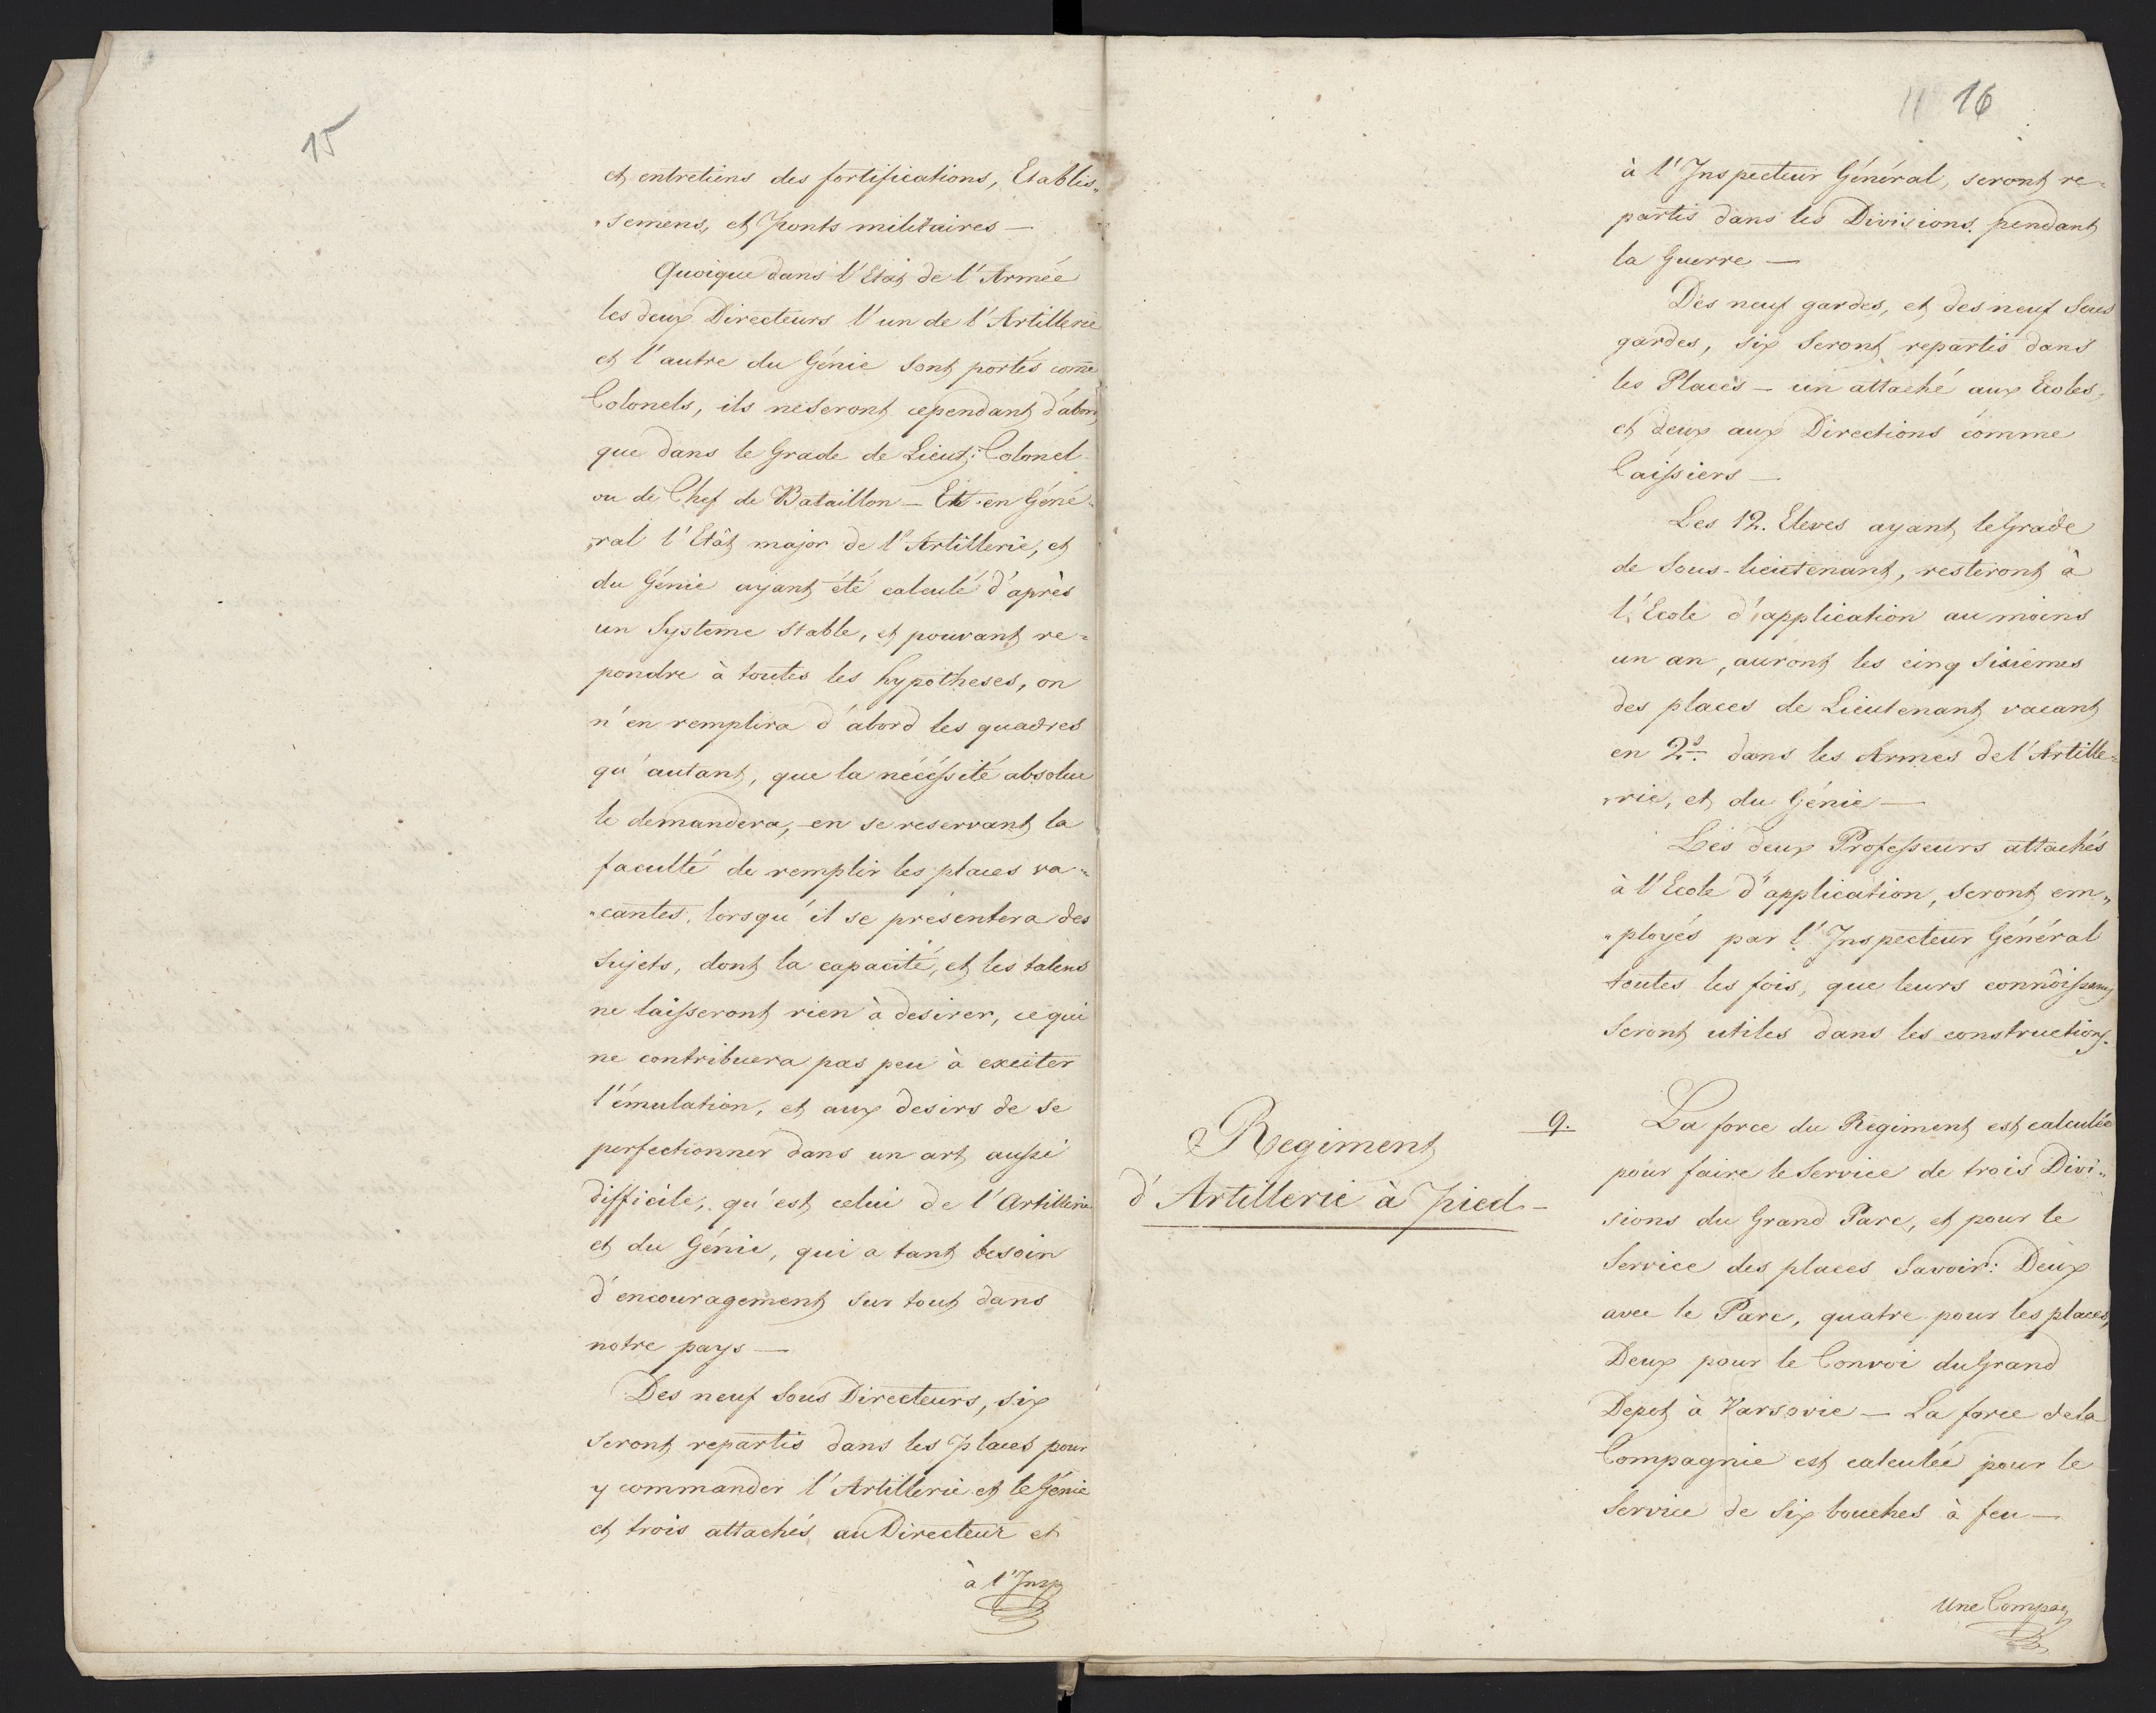 15
et entretiens des fortifications, Etablis„
„semens, et Ponts militaires —
Quoique dans l'Etat de l'Armée
les deux Directeurs l'un de l'Artillerie
et l'autre du Génie sont portés come
Colonels, ils ne seront cependant d'abord
que dans le Grade de Lieut: Colonel
ou de Chef de Bataillon — Et en Géné„
„ral l'Etât major de l'Artillerie, et
du Génie ayant été calculé d'après
un Systeme stable, et pouvant re=
pondre à toutes les hypotheses, on
n'en remplira d'abord les quadres
qu'autant, que la nécéssité absolue
le demandera, en se reservant la
faculté de remplir les places va„
„cantes, lorsqu'il se présentera des
Sujets, dont la capacité, et les talens
ne laisseront rien à desirer, ce qui
ne contribuera pas peu à exciter
l'émulation, et aux desirs de se
perfectionner dans un art aussi
difficile, qu'est celui de l'Artillerie
et du Génie, qui a tant besoin
d'encouragement sur tout dans
notre pays —
Des neuf Sous Directeurs, six
seront repartis dans les places pour
y commander l'Artillerie et le Génie
et trois attachés au Directeur et
à l'Insp
11 16
à l'Inspecteur Général, seront re=
partis dans les Divisions pendant
la Guerre —
Des neuf gardes, et des neuf Sous
gardes, six seront repartis dans
les Places — un attaché aux Ecoles,
et deux aux Directions comme
Caissiers —
Les 12. Eleves ayant le Grade
de Sous-lieutenant, resteront à
l'Ecole d'application au moins
un an, auront les cinq sixièmes
des places de Lieutenant vacant
en 2d. dans les Armes de l'Artille=
„rie, et du Génie —
Les deux Professeurs attachés
à l'Ecole d'application, seront em„
„ployés par l'Inspecteur Général
toutes les fois, que leurs connoissans
seront utiles dans les constructions.
Regiment
d'Artillerie à Pied —
9. La force du Régiment est calculée
pour faire le Service de trois Divi„
sions du Grand Parc, et pour le
Service des places Savoir: Deux
avec le Parc, quatre pour les places,
Deux pour le Convoi du Grand
Depot à Varsovie — La force de la
Compagnie est calculée pour le
Service de Six bouches à feu —
Une Compag